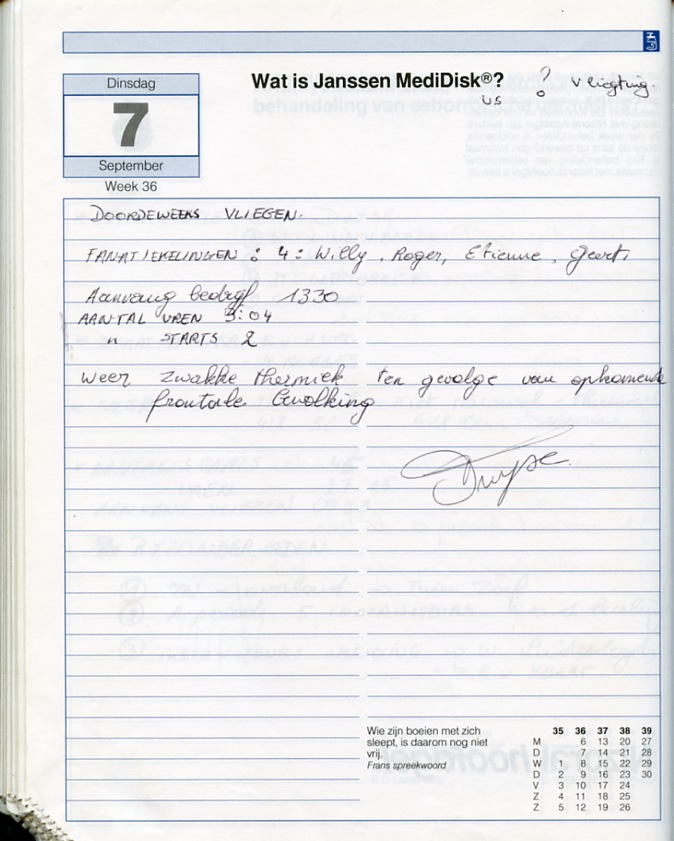 Dinsdag
7
September
Week 36
Wat is Janssen MediDisk®? ? Vliegting.
us
DOORDEWEEKS VLIEGEN.
FANATIEKELINGEN : 4 : Willy, Roger, Etienne, Geert,
Aanvang bedrijf 1330
AANTAL UREN 3:04
" STARTS 2
Weer zwakke thermiek ten gevolge van opkomende
frontale bewolking
Wie zijn boeien met zich
sleept, is daarom nog niet
vrij.
Frans spreekwoord
35 36 37 38 39
M 6 13 20 27
D 7 14 21 28
W 1 8 15 22 29
D 2 9 16 23 30
V 3 10 17 24
Z 4 11 18 25
Z 5 12 19 26